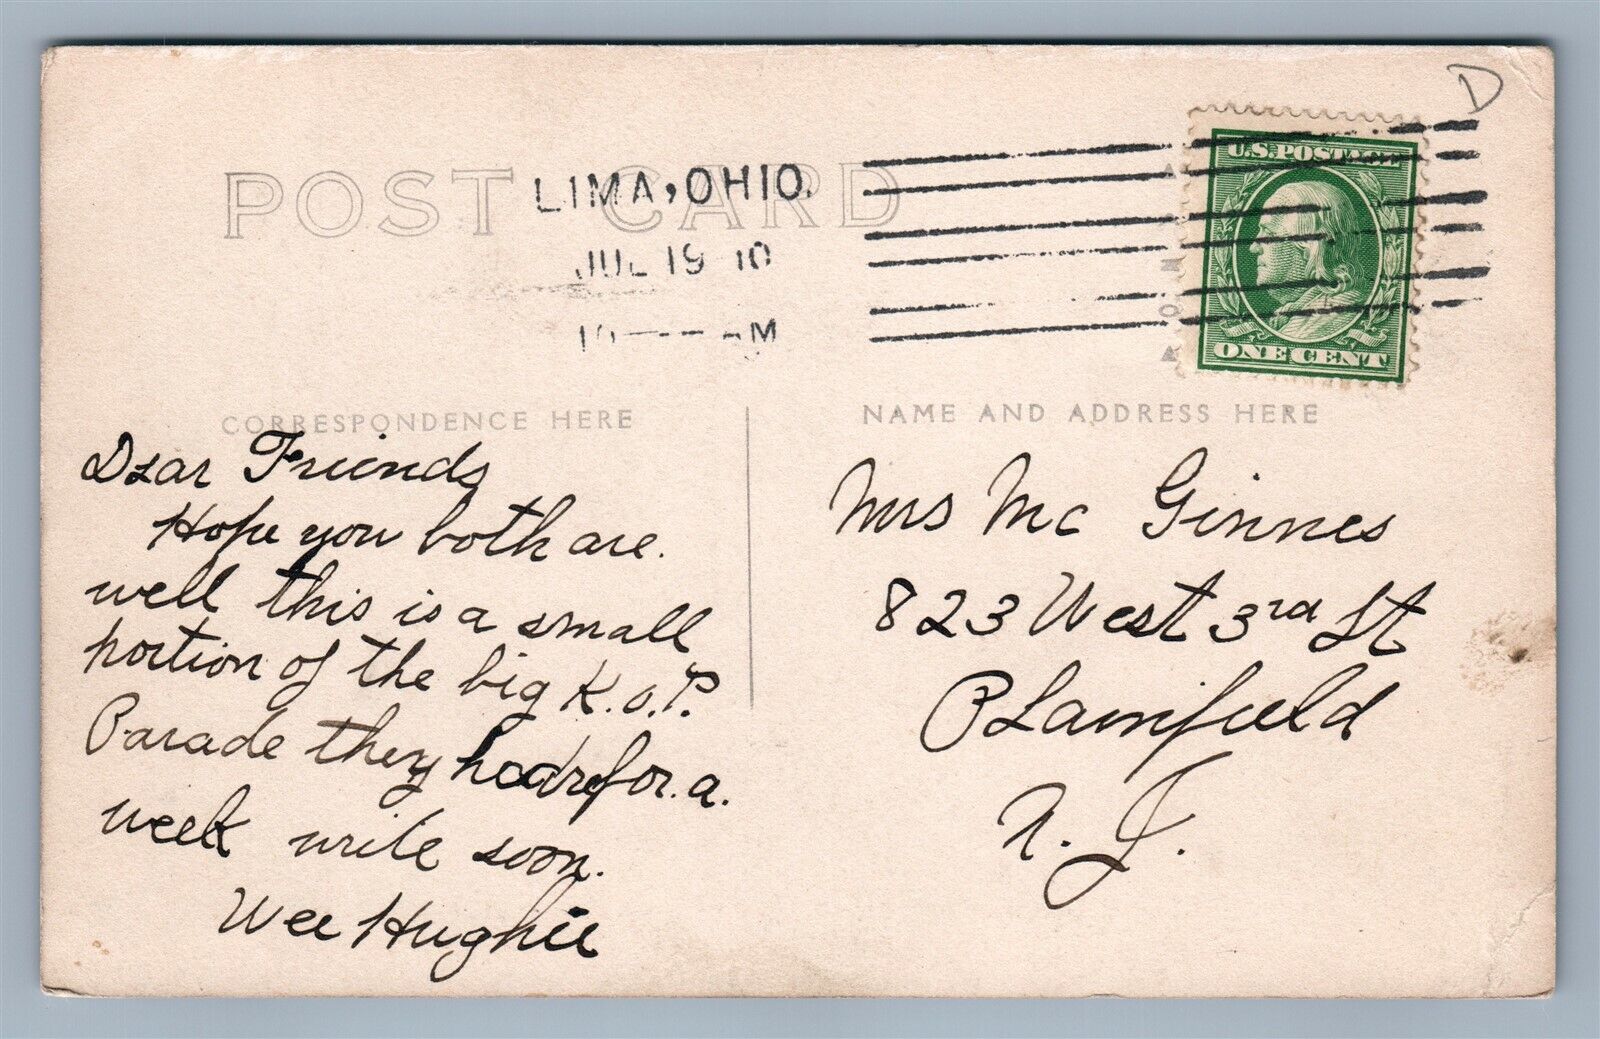 D
U.S. POSTAGE
POST CARD
LIMA, OHIO.
JUL 19 10
10 — AM
ONE CENT
CORRESPONDENCE HERE
NAME AND ADDRESS HERE
Dear Friends
Hope you both are.
well this is a small
portion of the big K.o.P.
Parade they had here for a.
week write soon.
Wee Hughie
Mrs Mc Ginnes
823 West 3rd St
Plainfield
N. J.